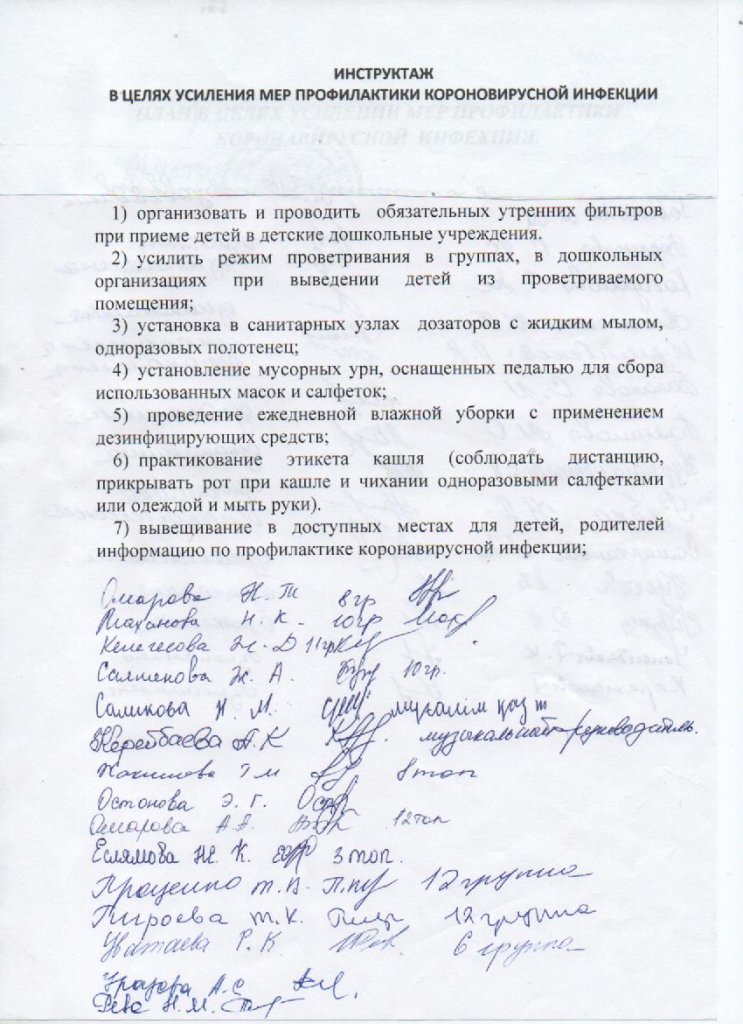 ИНСТРУКТАЖ
В ЦЕЛЯХ УСИЛЕНИЯ МЕР ПРОФИЛАКТИКИ КОРОНОВИРУСНОЙ ИНФЕКЦИИ
ПЛАН В ЦЕЛЯХ УСИЛЕНИИ МЕР ПРОФИЛАКТИКИ
КОРОНАВИРУСНОЙ ИНФЕКЦИИ.
1) организовать и проводить обязательных утренних фильтров
при приеме детей в детские дошкольные учреждения.
2) усилить режим проветривания в группах, в дошкольных
организациях при выведении детей из проветриваемого
помещения;
3) установка в санитарных узлах дозаторов с жидким мылом,
одноразовых полотенец;
4) установление мусорных урн, оснащенных педалью для сбора
использованных масок и салфеток;
5) проведение ежедневной влажной уборки с применением
дезинфицирующих средств;
6) практикование этикета кашля (соблюдать дистанцию,
прикрывать рот при кашле и чихании одноразовыми салфетками
или одеждой и мыть руки).
7) вывешивание в доступных местах для детей, родителей
информацию по профилактике коронавирусной инфекции;
Омарова Ж. Т 8 гр
Маханова Н. К. 10 гр
Ж. D 11 гр
Ж. А. 10 гр.
Саликова Н. М. мұғалім
Керейбаева А. К музыкальный руководитель.
Г М 8 топ
Остонова Э. Г.
Омарова А. А. 12 топ
Еслямова Ж. К. 3 топ.
Проценко Т. В. 12 группа
Т. К. 12 группа
Р. К 6 группа
Уразова А. С
Рева Н. М.